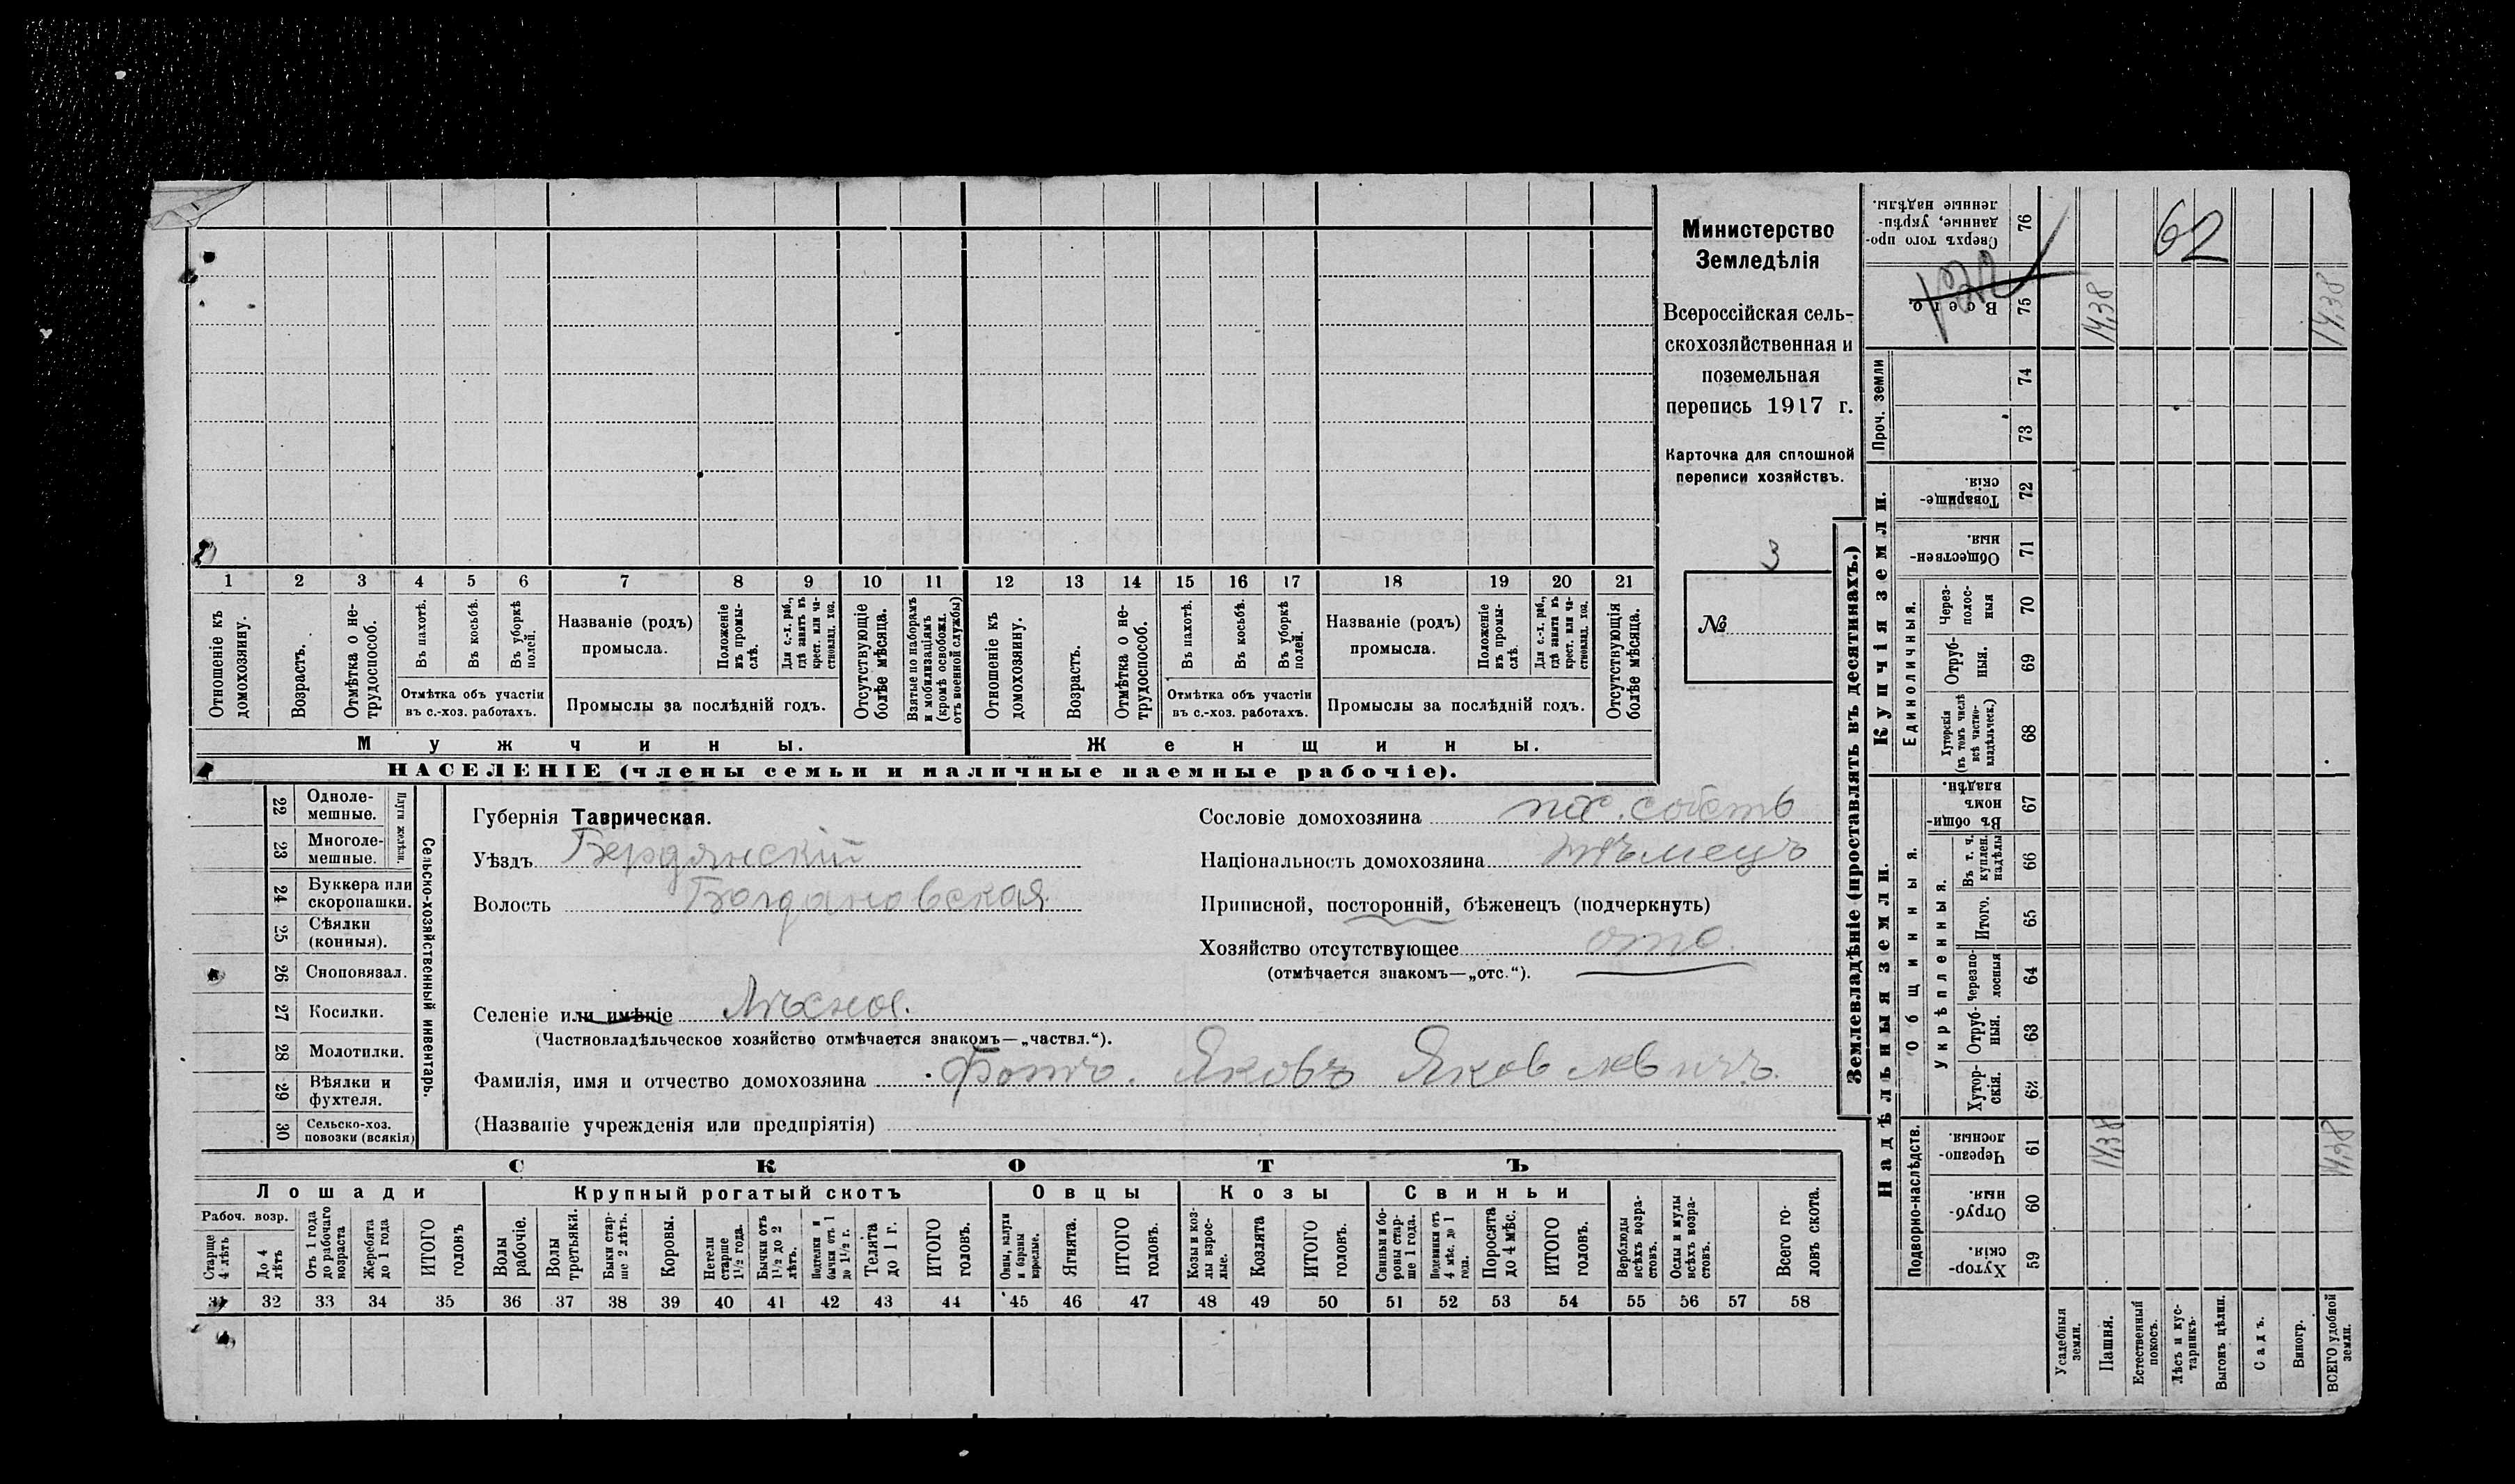 1 2 3 4 5 6 7 8 9 10 11 12 13 14 15 16 17 18 19 20 21
Отношеніе къ домохозяину.
Возрастъ.
Отмѣтка о не-
трудоспособ.
Въ пахотѣ.
Въ косьбѣ.
Въ уборкѣ
полей.
Отмѣтка объ участіи
въ с.-хоз. работахъ.
Названіе (родъ)
промысла.
Положеніе
въ промы-
слѣ.
Для с.-х. раб.,
гдѣ занятъ въ
крест. или ча-
стновлад. хоз.
Промыслы за послѣдній годъ.
Отсутствующіе
болѣе мѣсяца.
Взятые по наборамъ
и мобилизаціямъ
(кромѣ освобожд.
отъ военной службы)
Отношеніе къ
домохозяину.
Возрастъ.
Отмѣтка о не-
трудоспособ.
Въ пахотѣ.
Въ косьбѣ.
Въ уборкѣ
полей.
Отмѣтка объ участіи
въ с.-хоз. работахъ.
Названіе (родъ)
промысла.
Положеніе
въ промы-
слѣ.
Для с.-х. раб.,
гдѣ занята въ
крест. или ча-
стновлад. хоз.
Промыслы за послѣдній годъ.
Отсутствующія
болѣе мѣсяца.
Мужчины.
Женщины.
НАСЕЛЕНІЕ (члены семьи и наличные наемные рабочіе).
Министерство
Земледѣлія
Всероссійская сель-
скохозяйственная и
поземельная
перепись 1917 г.
Карточка для сплошной
переписи хозяйствъ.
3
№
22 Однолемешные.
23 Многолемешные.
Плуги желѣзн.
24 Буккера или
скоропашки.
25 Сѣялки
(конныя).
26 Сноповязал.
27 Косилки.
28 Молотилки.
29 Вѣялки и
фухтеля.
30 Сельско-хоз.
повозки (всякія)
Сельско-хозяйственный инвентарь.
Губернія Таврическая.
Уѣздъ Бердянскій
Волость Богдановская
Селеніе или имѣніе Лѣсное.
(Частновладѣльческое хозяйство отмѣчается знакомъ—„частвл.“).
Фамилія, имя и отчество домохозяина Фотъ. Яковъ Яковлевичъ.
(Названіе учрежденія или предпріятія)
Сословіе домохозяина пос. собств
Національность домохозяина Нѣмецъ
Приписной, посторонній, бѣженецъ (подчеркнуть)
Хозяйство отсутствующее отс.
(отмѣчается знакомъ—„отс.“).
СКОТЪ
Лошади
Крупный рогатый скотъ
Овцы
Козы
Свиньи
Рабоч. возр.
Старще
4 лѣтъ
До 4
лѣтъ
Отъ 1 года
до рабочаго
возраста
Жеребята
до 1 года
ИТОГО
головъ
Волы
рабочіе.
Волы
третьяки.
Быки стар-
ше 2 лѣтъ.
Коровы.
Нетели
старше
1½ года.
Бычки отъ
1½ до 2
лѣтъ.
Подтелки и
бычки отъ 1
до 1½ г.
Телята
до 1 г.
ИТОГО
головъ.
Овцы, валухи
и бараны
взрослые.
Ягнята.
ИТОГО
головъ.
Козы и коз-
лы взрос-
лые.
Козлята
ИТОГО
головъ.
Свиньи и бо-
ровы стар-
ше 1 года.
Подсвинки отъ
4 мѣс. до 1
года.
Поросята
до 4 мѣс.
ИТОГО
головъ.
Верблюды
всѣхъ возра-
стовъ.
Ослы и мулы
всѣхъ возра-
стовъ.
Всего го-
ловъ скота.
31 32 33 34 35 36 37 38 39 40 41 42 43 44 45 46 47 48 49 50 51 52 53 54 55 56 57 58
Землевладѣніе (проставлять въ десятинахъ.)
Надѣльныя земли.
Купчія земли.
Проч. земли
Подворно-наслѣдств.
Общинныя.
Укрѣпленныя.
Единоличныя.
Сверхъ того про-
данные, укрѣп-
ленные надѣлы.
76
62
Всего
75
14,38
14,38
74
73
Товарище-
скія.
72
Обществен-
ныя.
71
Через-
полос-
ныя
70
Отруб-
ныя.
69
Хуторскія
(въ томъ числѣ
всѣ частно-
владѣльческ.)
68
Въ общин-
номъ
владѣн.
67
Въ т. ч.
куплен.
надѣлы
66
Итого.
65
Черезпо-
лосныя
64
Отруб-
ныя.
63
Хутор-
скія.
62
Черезпо-
лосныя.
61
14,38
14,38
Отруб-
ныя.
60
Хутор-
скія.
59
Усадебныя
земли.
Пашня.
Естественный
покосъ.
Лѣсъ и кус-
тарникъ.
Выгонъ цѣлин.
Садъ.
Виногр.
ВСЕГО удобной
земли.